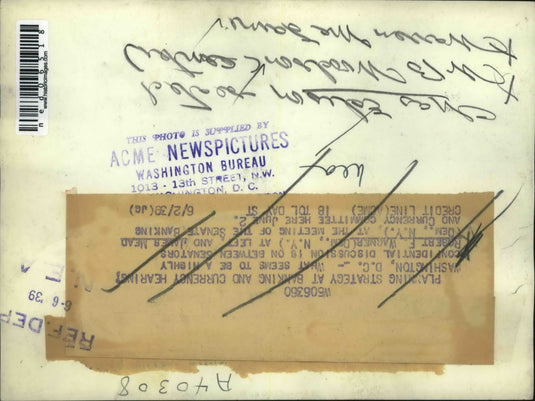 THIS PHOTO IS SUPPLIED BY
ACME NEWSPICTURES
WASHINGTON BUREAU
1013 - 13th STREET, N.W.
WASHINGTON, D. C.
W506350
PLANNING STRATEGY AT BANKING AND CURRENCY HEARING
WASHINGTON, D.C. -- WHAT SEEMS TO BE A HIGHLY
CONFIDENTIAL DISCUSSION IS ON BETWEEN SENATORS
ROBERT F. WAGNER(DEM., N.Y.) AT LEFT, AND JAMES MEAD
(DEM., N.Y.), AT THE MEETING OF THE SENATE BANKING
AND CURRENCY COMMITTEE HERE JUNE 2.
CREDIT LINE(ACME) 18 TOL DAY ST 6/2/39(JG)
REF. DEP
6-6-'39
N E A
A40308
Chas Edison